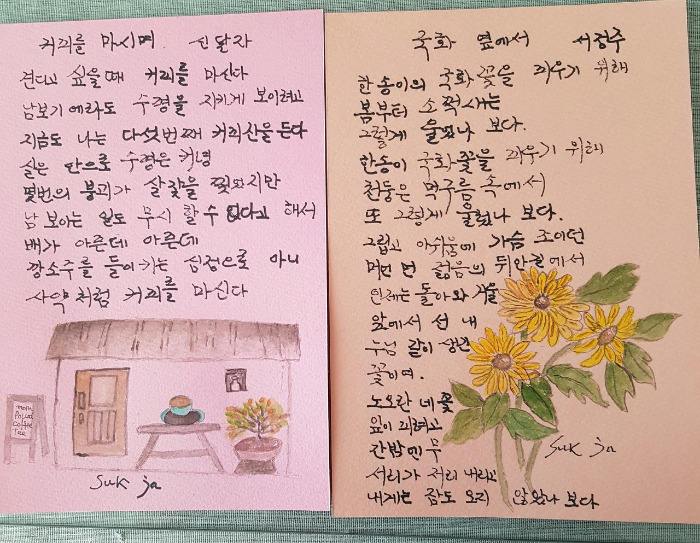 커피를 마시며 신달자
견디고 싶을때 커피를 마신다
남보기에라도 수평을 지키게 보이려고
지금도 나는 다섯번째 커피잔을 든다
실은 안으로 수평은 커녕
몇번의 붕괴가 살갗을 찢었지만
남 보이는 일도 무시 할 수 없다고 해서
배가 아픈데 아픈데
깡소주를 들이키는 심정으로 아니
사약처럼 커피를 마신다
coffee
Tea
Suk ja
국화 옆에서 서정주
한송이의 국화꽃을 피우기 위해
봄부터 소쩍새는
그렇게 울었나 보다.
한송이 국화꽃을 피우기 위해
천둥은 먹구름 속에서
또 그렇게 울었나 보다.
그립고 아쉬움에 가슴 조이던
머언 먼 젊음의 뒤안길에서
인제는 돌아와 거울
앞에서 선 내
누님 같이 생긴
꽃이여.
노오란 네 꽃
잎이 피려고
간밤엔 무
서리가 저리 내리고
내게는 잠도 오지 않았나 보다
Suk ja